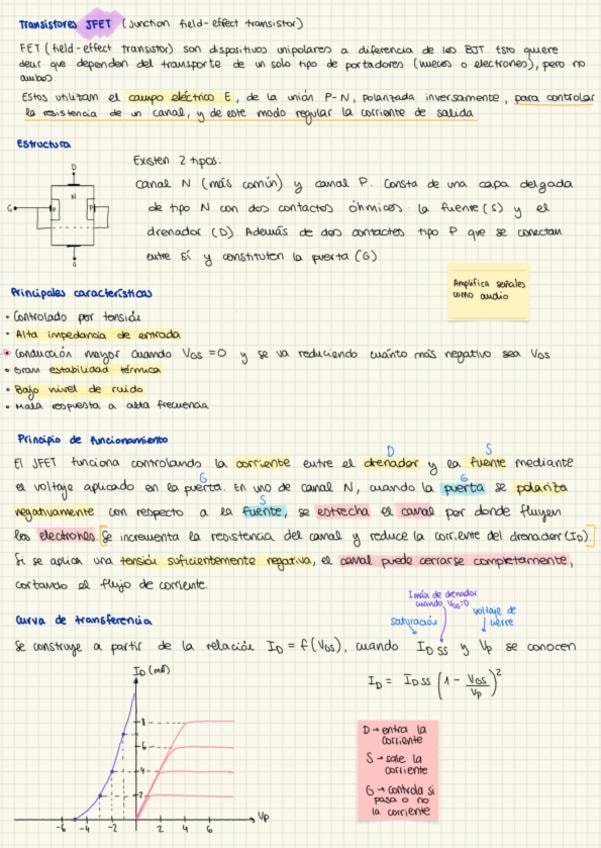 Transistores JFET (Junction field-effect transistor)
FET (field-effect transistor) son dispositivos unipolares a diferencia de los BJT. Esto quiere
decir que dependen del transporte de un solo tipo de portadores (huecos o electrones), pero no
ambos.
Estos utilizan el campo eléctrico E, de la unión P-N, polarizada inversamente, para controlar
la resistencia de un canal, y de este modo regular la corriente de salida
Estructura
Existen 2 tipos.
canal N (más común) y canal P. Consta de una capa delgada
de tipo N con dos contactos óhmicos: la fuente (S) y el
drenador (D) Además de dos contactos tipo P que se conectan
entre sí y constituten la puerta (G)
D
N
G
P
P
S
Amplifica señales
como audio
Principales características
• Controlado por tensión
• Alta impedancia de entrada
• Conducción mayor cuando VGS = 0 y se va reduciendo cuánto más negativo sea VGS
• Gran estabilidad térmica
• Bajo nivel de ruido
• Mala respuesta a alta frecuencia
Principio de funcionamiento
D S
El JFET funciona controlando la corriente entre el drenador y la fuente mediante
G G
el voltaje aplicado en la puerta. En uno de canal N, cuando la puerta se polariza
S
negativamente con respecto a la fuente, se estrecha el canal por donde fluyen
los electrones. Se incrementa la resistencia del canal y reduce la corriente del drenador (ID).
Si se aplica una tensión suficientemente negativa, el canal puede cerrarse completamente,
cortando el flujo de corriente.
I máx de drenador
cuando VGS=0
saturación
voltaje de
cierre
Curva de transferencia
Se construye a partir de la relación ID = f(VGS), cuando IDSS y Vp se conocen
ID = IDSS (1 - VGS/Vp)²
ID (mA)
8
6
4
2
-6 -4 -2 2 4 6 Vp
D → entra la
corriente
S → sale la
corriente
G → controla si
pasa o no
la corriente